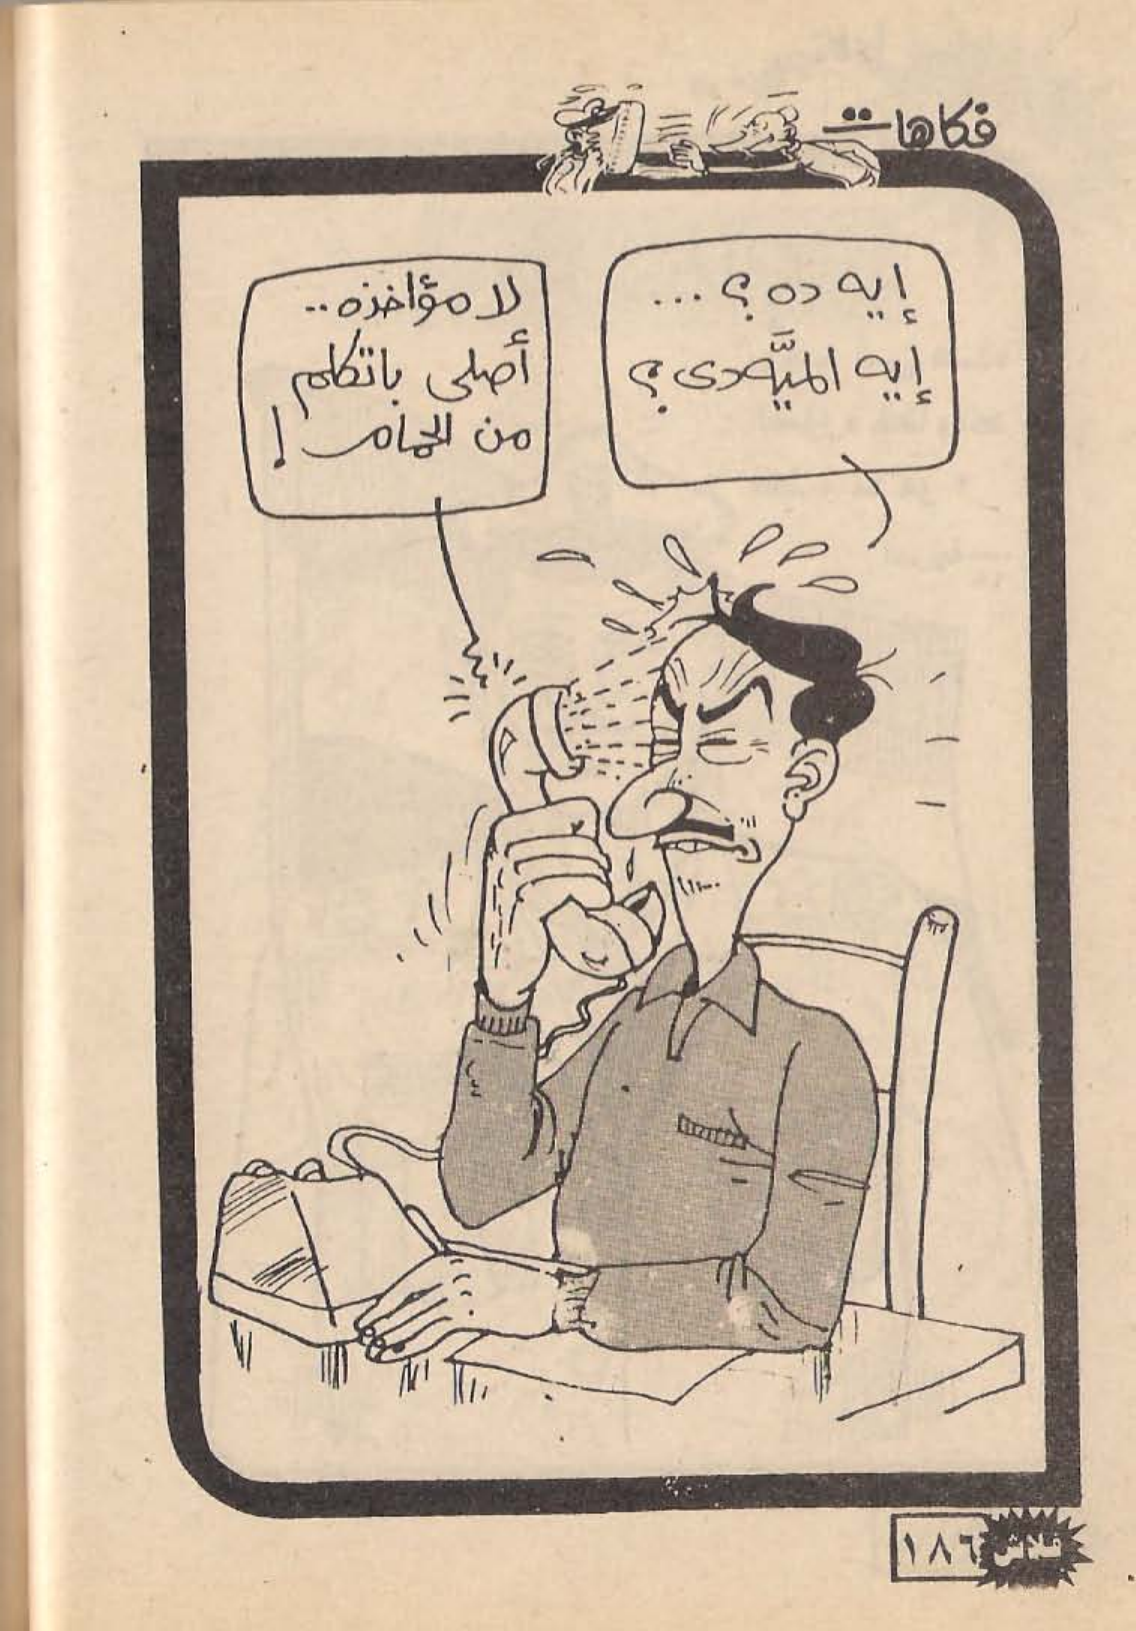 فكاهات
إيه ده ؟ ...
إيه الميَّه دى ؟
لا مؤاخذه ..
أصلى باتكلم
من الحمام !
فلاش ١٨٦